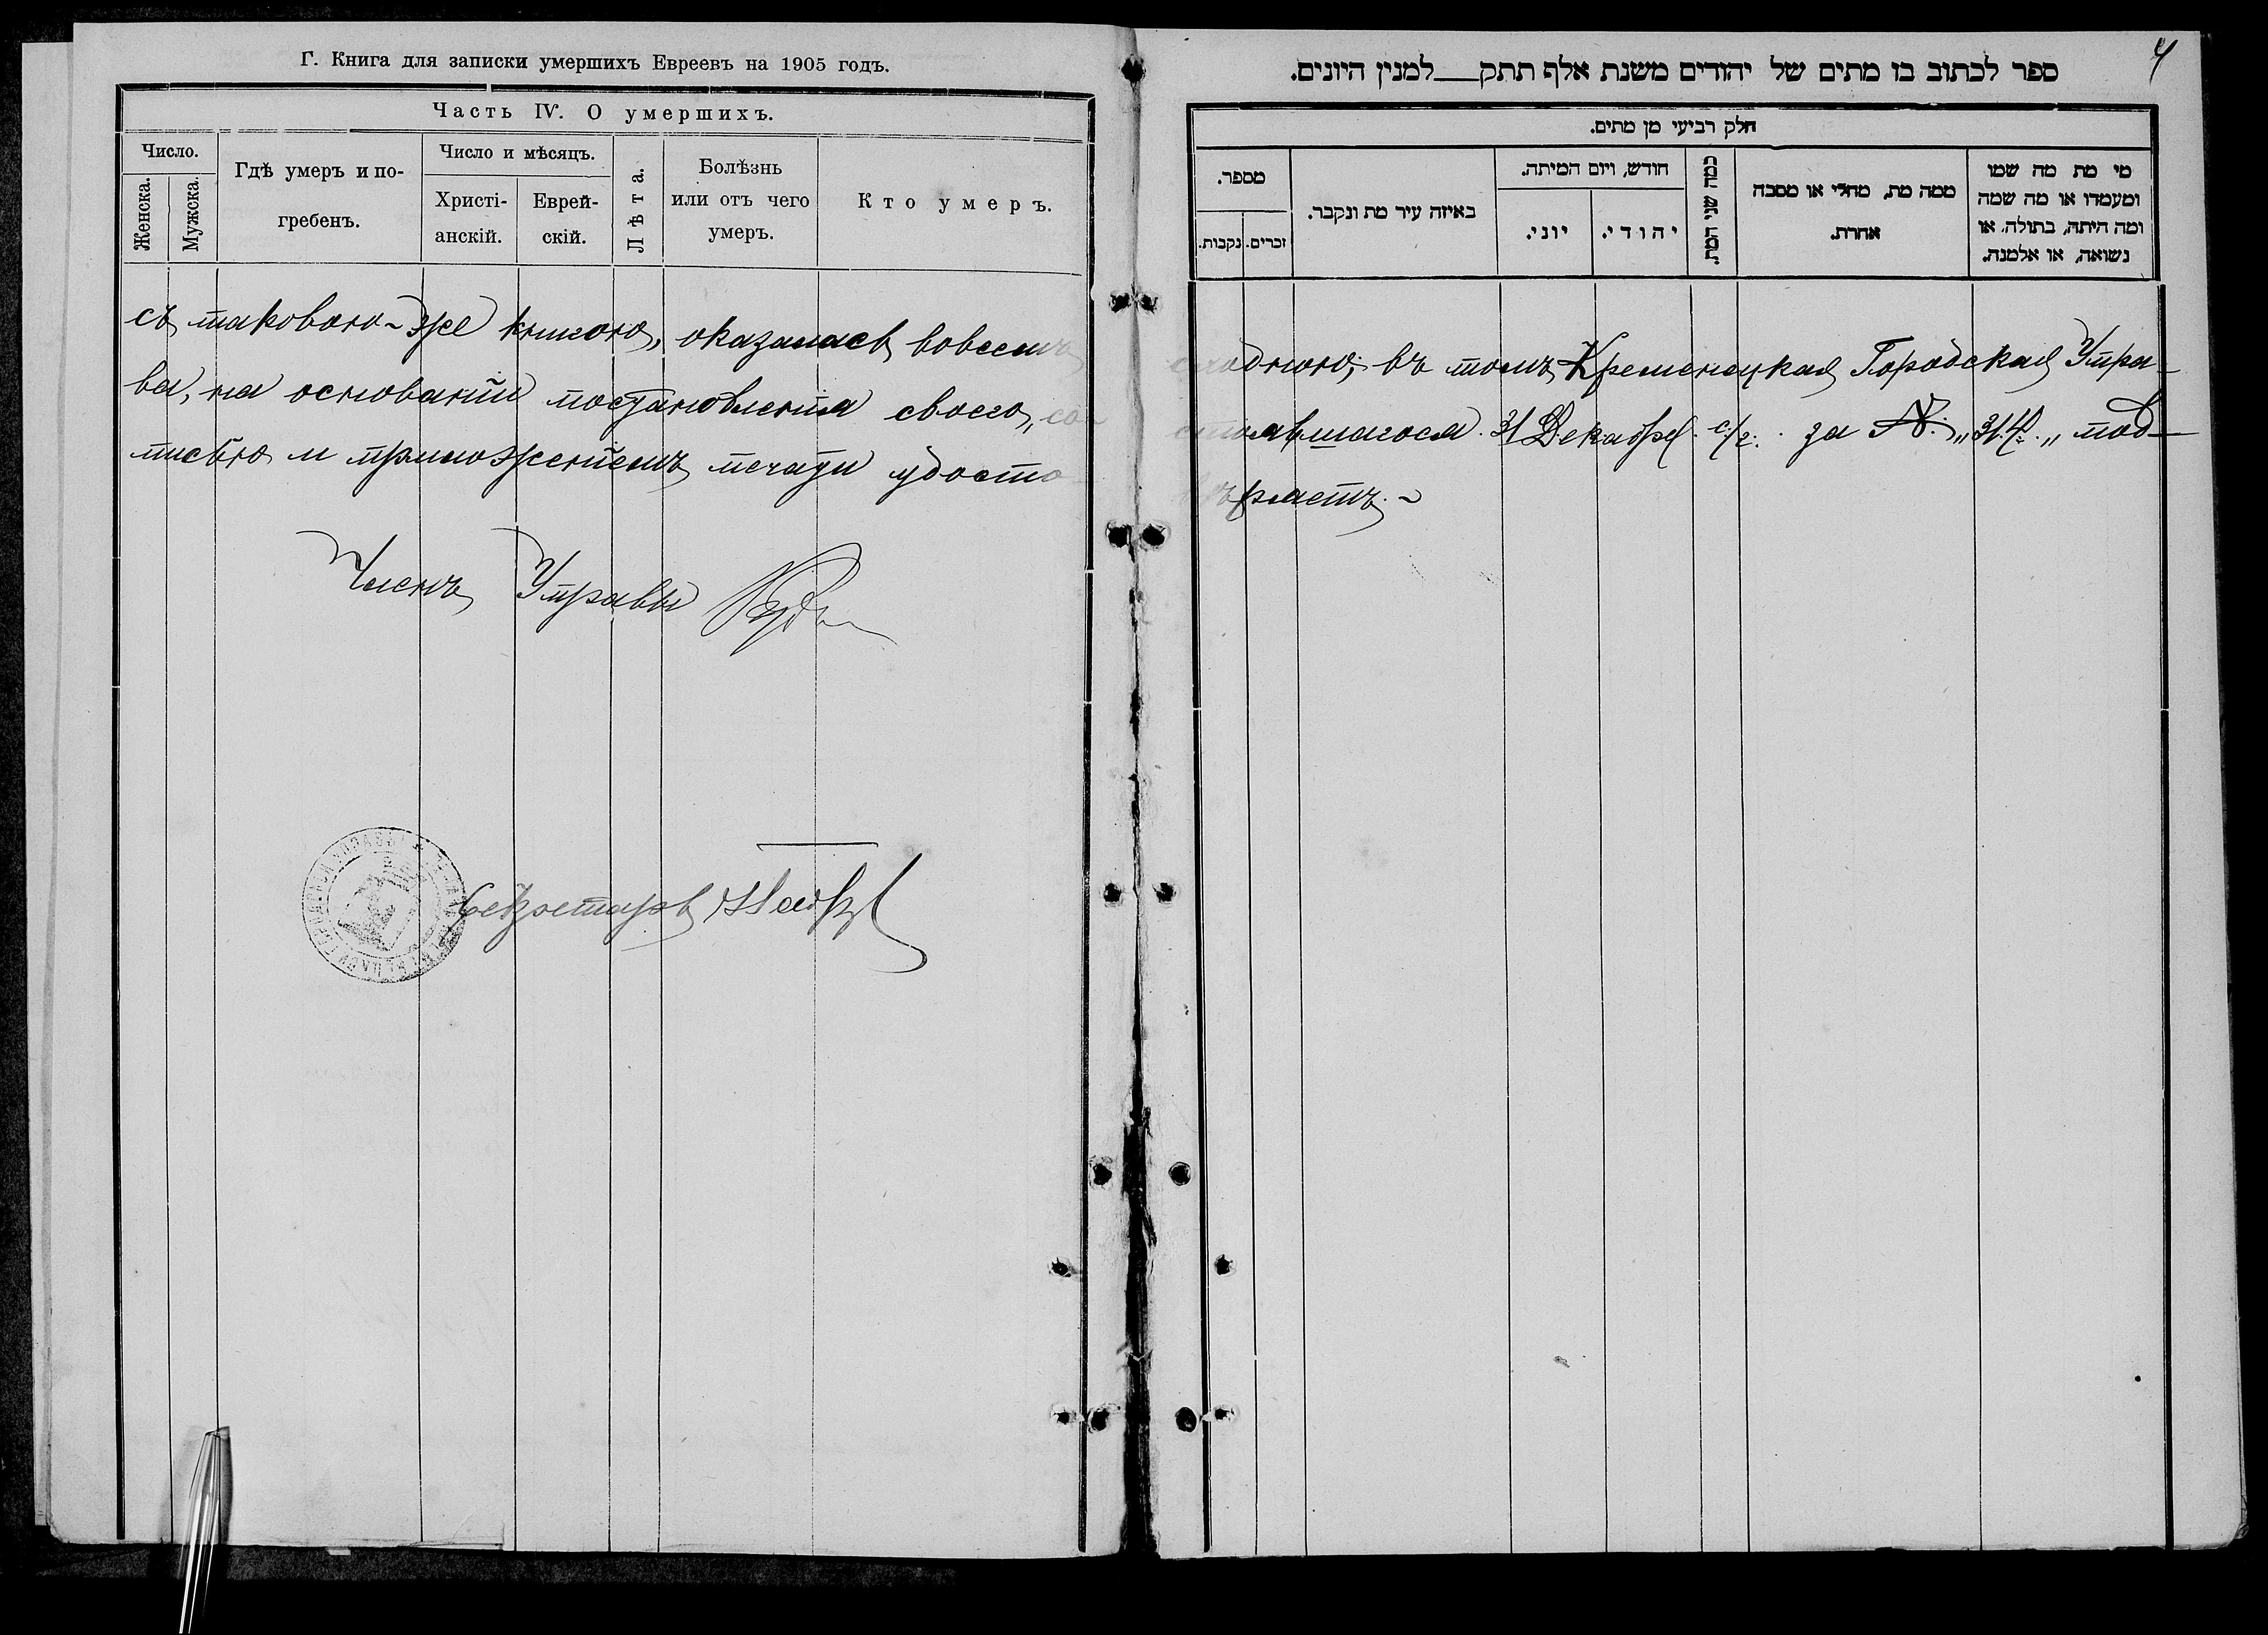 Г. Книга для записки умершихъ Евреевъ на 1905 годъ.
Часть IV. О умершихъ.
Число.
Женска.
Мужска.
Гдѣ умеръ и по-
гребенъ.
Число и мѣсяцъ.
Христі-
анскій.
Еврей-
скій.
Лѣта.
Болѣзнь
или отъ чего
умеръ.
Кто умеръ.
4
ספר לכתוב בו מתים של יהודים משנת אלף תתק___למנין היונים.
חלק רביעי מן מתים.
מספר.
נקבות.
זכרים.
באיזה עיר מת ונקבר.
חודש, ויום המיתה.
יוני.
יהודי.
כמה שני המת.
ממה מת, מחלי או מסבה
אחרת.
מי מת מה שמו
ומעמדו או מה שמה
ומה היתה, בתולה, או
נשואה, או אלמנה.
съ таковою-же книгою, оказалась вовсемъ сходною; въ томъ Кременецкая Городская Упра-
ва, на основаніи постановленія своего, со-стоявшагося 31 Декабря с/г. за №. „314„ под-
писью и приложеніемъ печати удосто-вѣряетъ.~
Членъ Управы
Секретарь